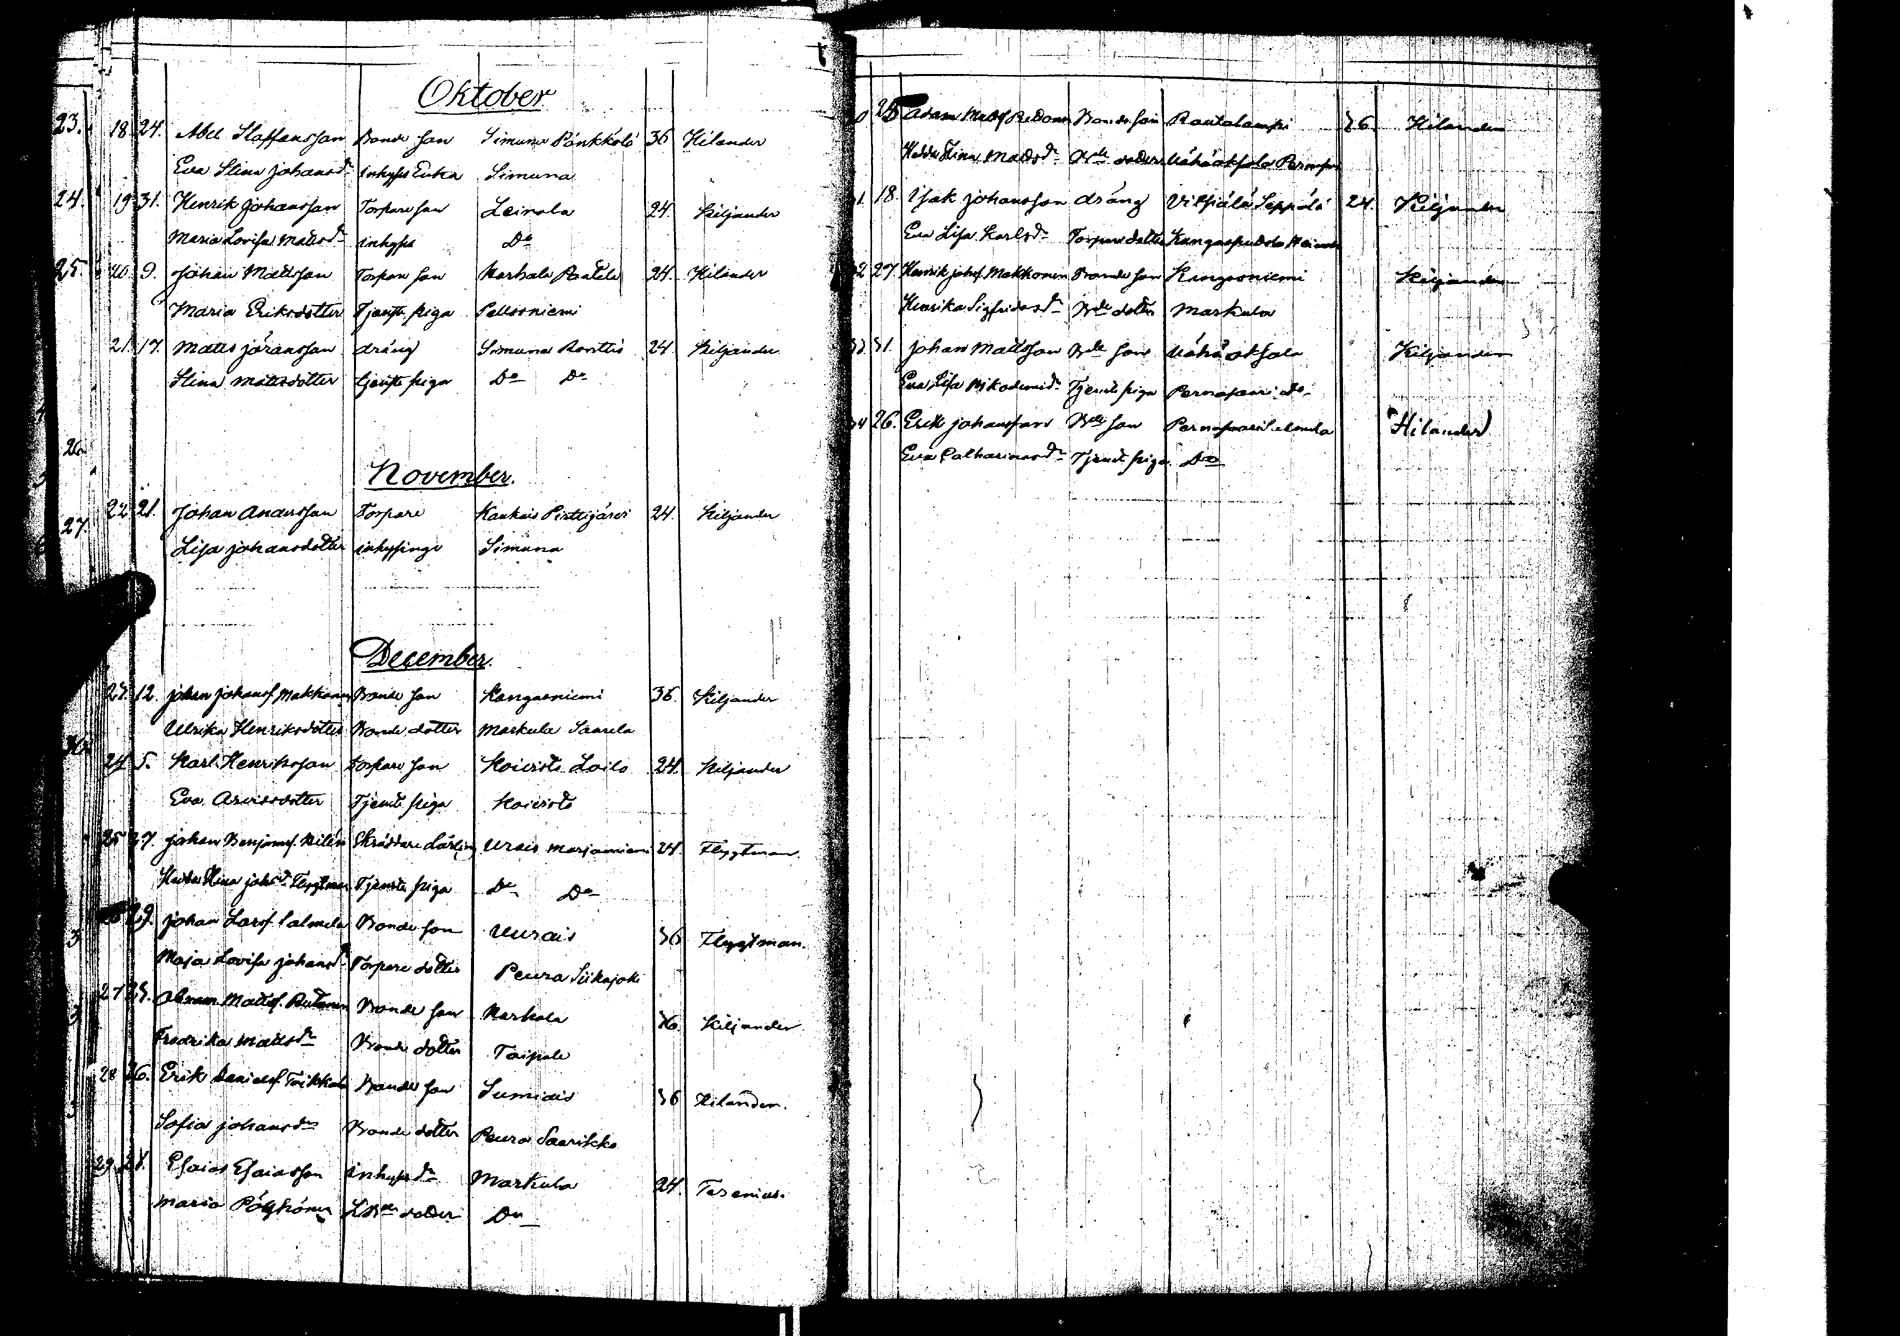 Oktober
23. 18. 24. Abel Staffansson Bonde son Simuna Pänkkölö 36 Hilander
Eva Stina Johansd:r inhyses Enka Simuna
24. 19. 31. Henrik Johansson Torpare son Leinola 24. Kiljander
Maria Lovisa Mattsd:r inhyses D:o
25. 20. 9. Johan Mattsson Torpare son Karhala 24. Hilander
Maria Eriksdotter Tjenste piga Pellosniemi
21. 17. Matts Jöransson dräng Simuna 24. Kiljander
Stina Mattsdotter tjenste piga D:o D:o
26.
November.
22. 21. Johan Andersson Torpare Kankais Pirttijärvi 24. Kiljander
27.
Lisa Johansdotter inhysinge Simuna
December.
23. 12. Johan Johansf. Makkonen Bonde son Kangasniemi 36. Kiljander
Ulrika Henriksdotter Bonde dotter Markula Saarela
24. 5. Karl Henriksson torpare son Koivisto Loilo 24. Kiljander
Eva Arvidsdotter Tjenste piga Koivisto
25. 27. Johan Benjamsf. Skräddare Lärling Urais Marjoniemi 24. Flygtman.
Hedda Stina Johsd:r Flygtman Tjenste piga D:o D:o
29. Johan Larsf. Salmela Bonde son Uurais 36 Flygtman.
Maja Lovisa Johansd:r Torpare dotter Peura Siikajoki
27. 25. Abram Mattsf. Bonde son Karhala 36. Kiljander
Fredrika Mattsd:r Bonde dotter Taipale
28. 26. Erik Danielsf. Toikkala Bonde son Sumiais 36 Hilander.
Sofia Johansd:r Bonde dotter Peura Saarikko
29. 28. Esaias Esaiasson inhyses Markula 24. Forenius.
Maria dotter D:o
26. Adam Mattsf. Bonde son Rautalampi 36. Hilander
Hedda Stina Mattsd:r B:de dotter
31. 18. Isak Johansson dräng Vihjälä Seppälä 24. Kiljander
Eva Lisa Karlsd:r Torpare dotter
32 27. Henrik Johsf. Makkonen Bonde son Kangasniemi Kiljander
Henrika Sigfridsd:r B:de dotter Markula
33. 31. Johan Mattsson B:de son Kiljander
Eva Lisa Nikodemid:r Tjenste piga Pernasaari D:o
34 26. Erik Johansson B:de son Pernasaari Salmela Hilander
Eva Catharinasd:r Tjenste piga D:o